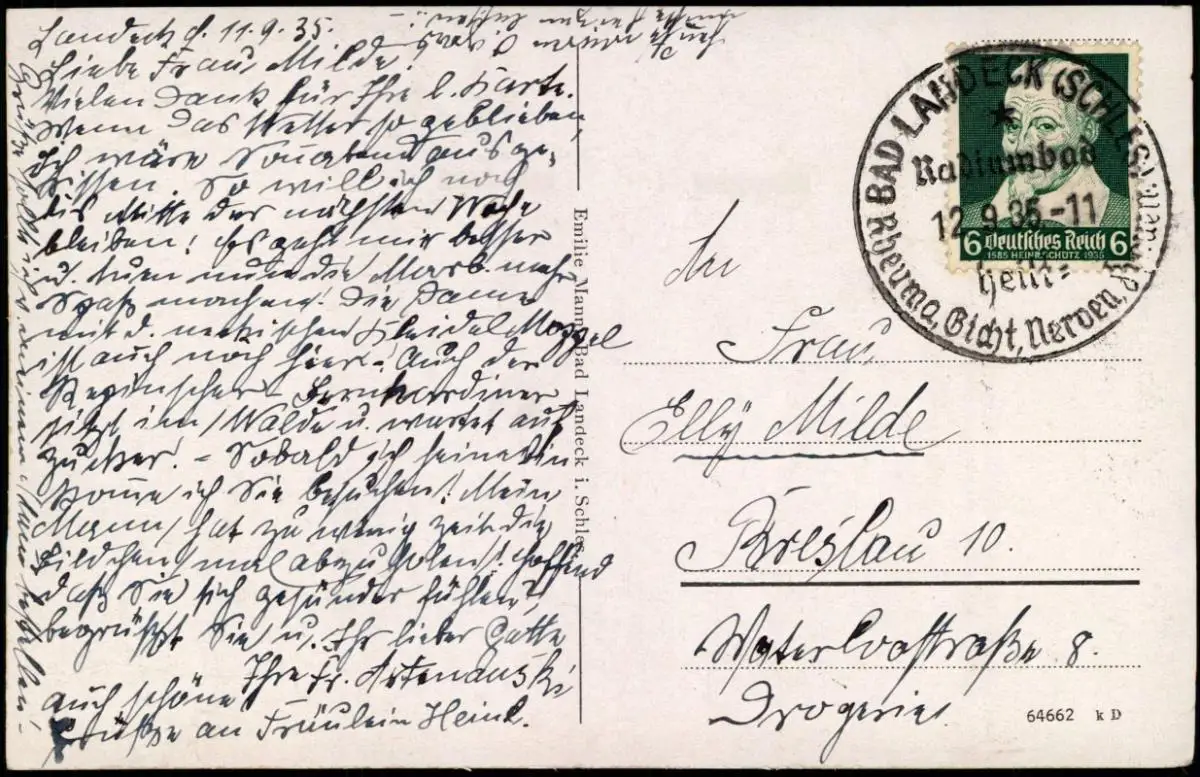 Landeck d. 11.9.35.
Liebe Frau Milde!
Vielen Dank für Ihre l. Karte.
Wenn das Wetter so geblieben,
ich wäre Sonnabend ausge-
rissen. So will ich noch
bis Mitte der nächsten Woche
bleiben! Es geht mir besser
u. tuen nun die Mor mehr
Spaß machen! Die Dame
mit d. neckischen Kleidel
ist auch noch hier. Auch der
Bernhardiner
sitzt im Walde u. wartet auf
Zucker. – Sobald ich heime bin
komme ich Sie besuchen! Mein
Mann hat zu wenig Zeit die
Bildchen mal abzuholen! Hoffend
daß Sie sich gesünder fühlen,
begrüßt Sie u. Ihr lieber Gatte
Ihre Fr.
auch schöne
Grüße an Fräulein Heinl.
Grüße sollte ich
Emilie Mann, Bad Landeck i. Schles.
BAD LANDECK (SCHLES)
Radiumbad
12.9.35-11
heilt:
Rheuma, Gicht, Nerven,
6 Deutsches Reich 6
1585 HEINR. SCHÜTZ 1935
An
Frau
Elly Milde
Breslau 10.
Waterloostraße 8.
Drogerie
64662 k D